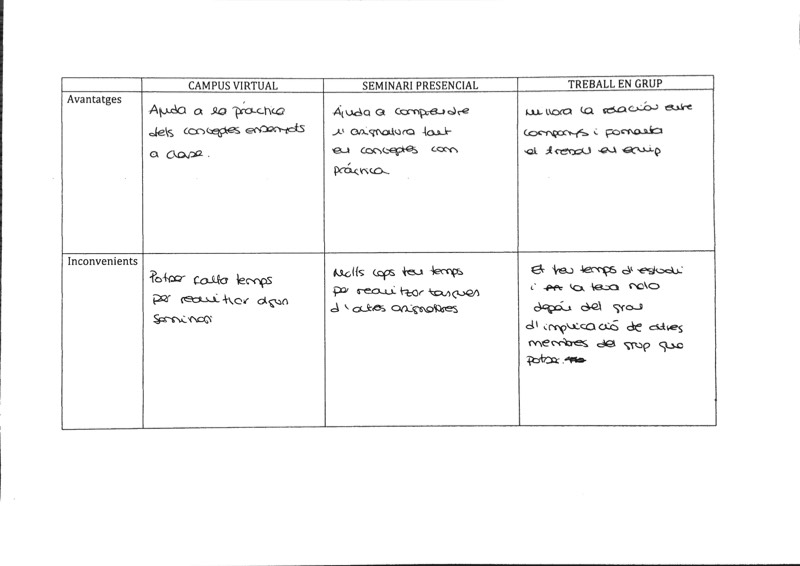 CAMPUS VIRTUAL
SEMINARI PRESENCIAL
TREBALL EN GRUP
Avantatges
Ajuda a la pràctica
dels conceptes ensenyats
a clase.
Ajuda a comprendre
l'asignatura tant
en conceptes com
pràctica
Millora la relación entre
companys i fomenta
el treball en equip
Inconvenients
Potser falta temps
per realitzar algun
seminari
Molts cops treu temps
per realitzar tasques
d'altres asignatures
El teu temps d'estudi
i la teva nota
depèn del grau
d'implicació de altres
membres del grup que
potser